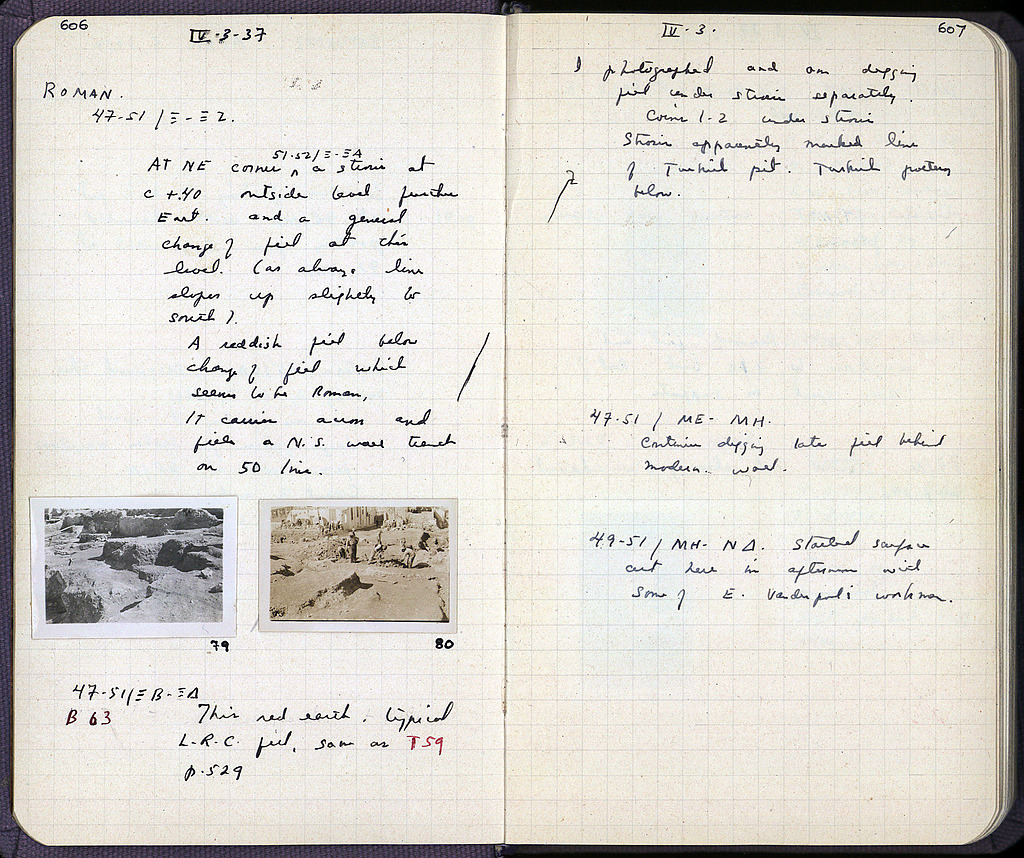 606
IV-3-37
ROMAN.
47-51 / Ξ - Ξ2.
51-52/Ξ-ΞA
AT NE corner ^ a strosis at
c +.40 outside level further
East. and a general
change of fill at this
level. (as always line
slopes up slightly to
south).
A reddish fill below
change of fill which
seems to be Roman,
It carries across and
fills a N.S. wall trench
on 50 line.
79
80
47-51/ΞB-ΞΔ
B 63 This red earth. typical
L.R.C. fill, same as T59
p.529
IV-3.
607
I photographed and am digging
fill under strosis separately.
Coins 1-2 under strosis
Strosis apparently marked line
of Turkish pit. Turkish pottery
below.
47-51 / ME- MH.
Continue digging late fill behind
modern wall.
49-51 / MH- NΔ. Started surface
cut here in afternoon with
some of E. Vanderpool's workmen.